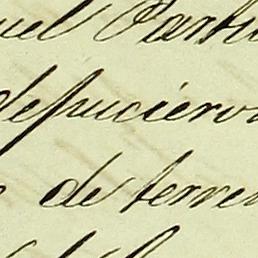 uel Parti
depuciero
de terre